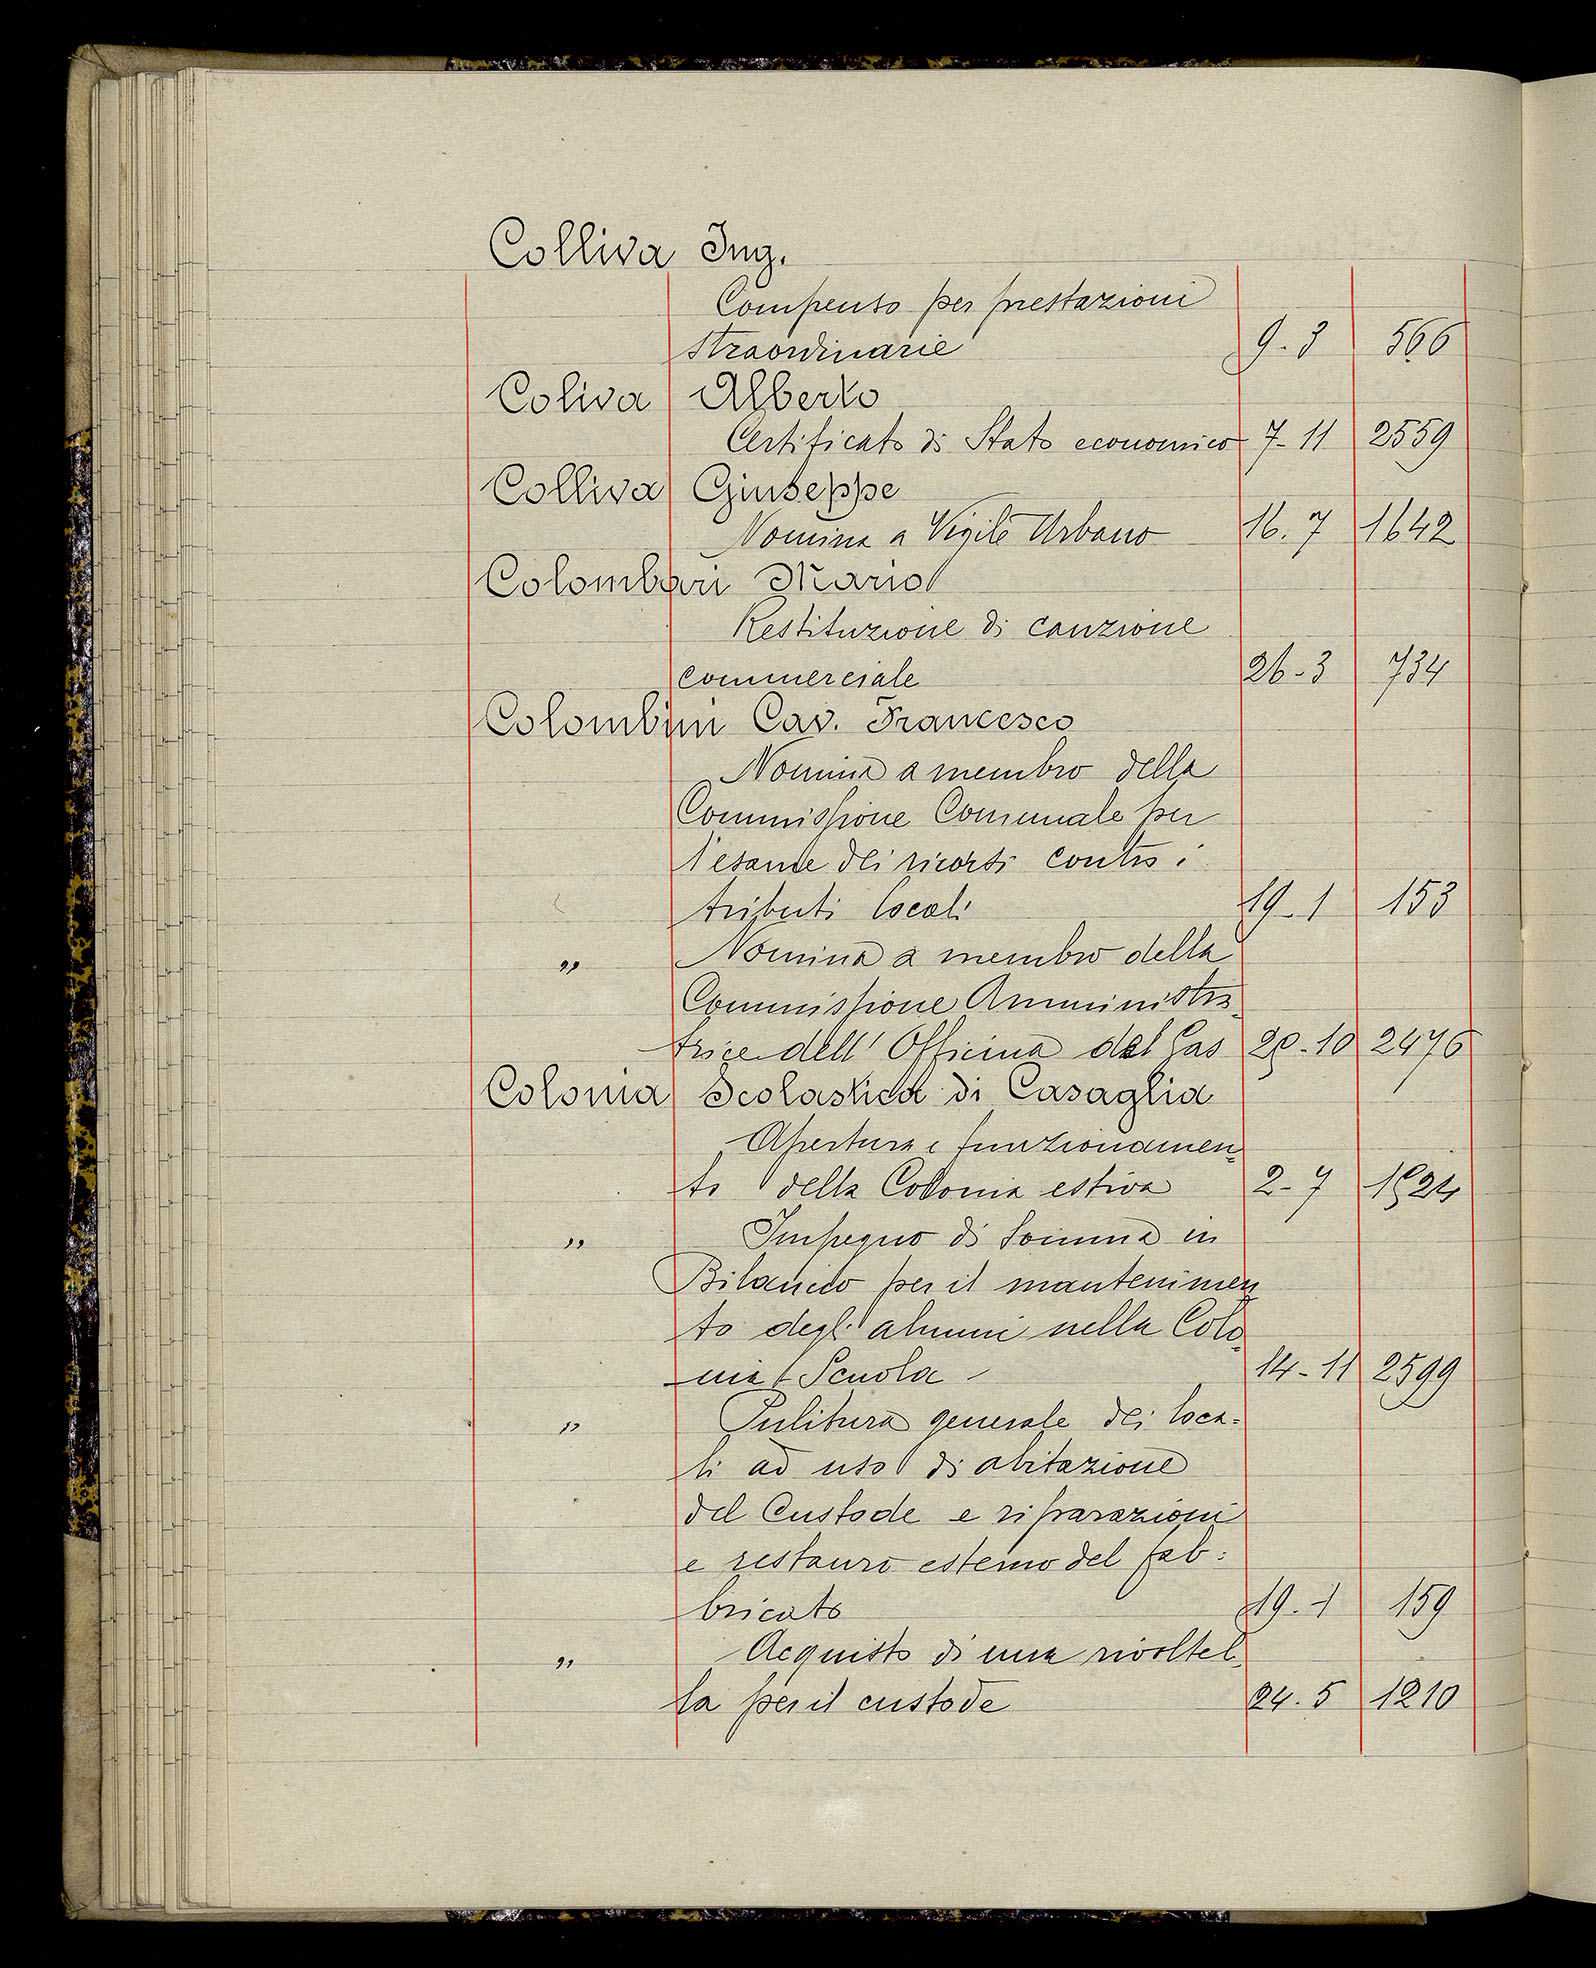 Colliva Ing.
Compenso per prestazioni
straordinarie 9-3 566
Coliva Alberto
Certificato di Stato economico 7-11 2559
Colliva Giuseppe
Nomina a Vigile Urbano 16.7 1642
Colombari Mario
Restituzione di cauzione
commerciale 26-3 734
Colombini Cav. Francesco
Nomina a membro della
Commissione Comunale per
l'esame dei ricorsi contro i
tributi locali 19-1 153
" Nomina a membro della
Commissione Amministra-
trice dell'Officina del Gas 29-10 2476
Colonia Scolastica di Casaglia
Apertura e funzionamen-
to della Colonia estiva 2-7 1524
" Impegno di Somma in
Bilancio per il mantenimen
to degli alunni nella Colo-
nia Scuola 14-11 2599
" Pulitura generale dei loca-
li ad uso di abitazione
del Custode e riparazioni
e restauro esterno del fab:
bricato 19.1 159
" Acquisto di una rivoltel-
la per il custode 24.5 1210